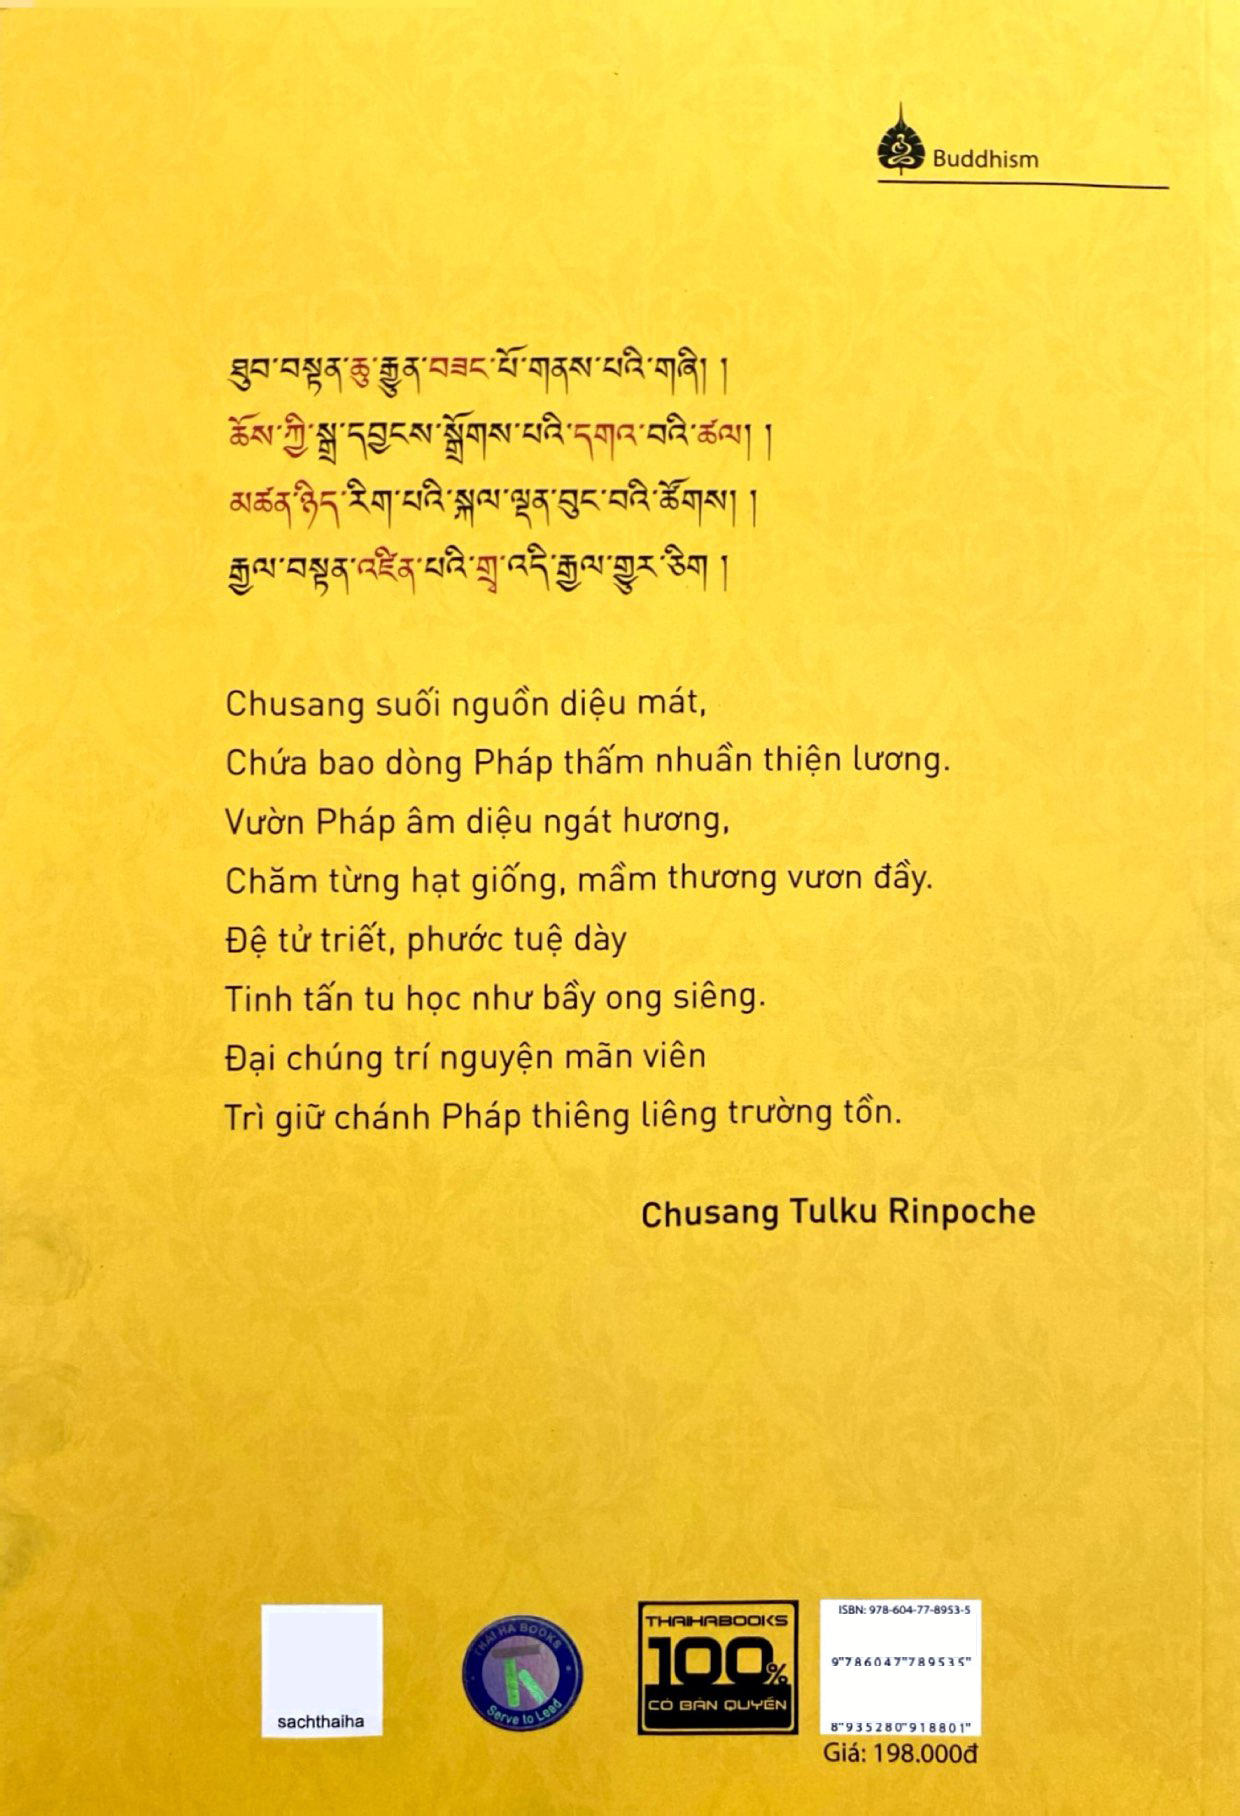 Buddhism
ཐུབ་བསྟན་ཆུ་རྒྱུན་བཟང་པོ་གནས་པའི་གཞི། །
ཆོས་ཀྱི་སྒྲ་དབྱངས་སྒྲོགས་པའི་དགའ་བའི་ཚལ། །
མཚན་ཉིད་རིག་པའི་སྐལ་ལྡན་བུང་བའི་ཚོགས། །
རྒྱལ་བསྟན་འཛིན་པའི་གྲྭ་འདི་རྒྱལ་གྱུར་ཅིག །
Chusang suối nguồn diệu mát,
Chứa bao dòng Pháp thấm nhuần thiện lương.
Vườn Pháp âm diệu ngát hương,
Chăm từng hạt giống, mầm thương vươn đầy.
Đệ tử triết, phước tuệ dày
Tinh tấn tu học như bầy ong siêng.
Đại chúng trí nguyện mãn viên
Trì giữ chánh Pháp thiêng liêng trường tồn.
Chusang Tulku Rinpoche
sachthaiha
THAI HA BOOKS
Serve to Lead
THAIHABOOKS
100%
CÓ BẢN QUYỀN
ISBN: 978-604-77-8953-5
9"786047"789535"
8"935280"918801"
Giá: 198.000đ